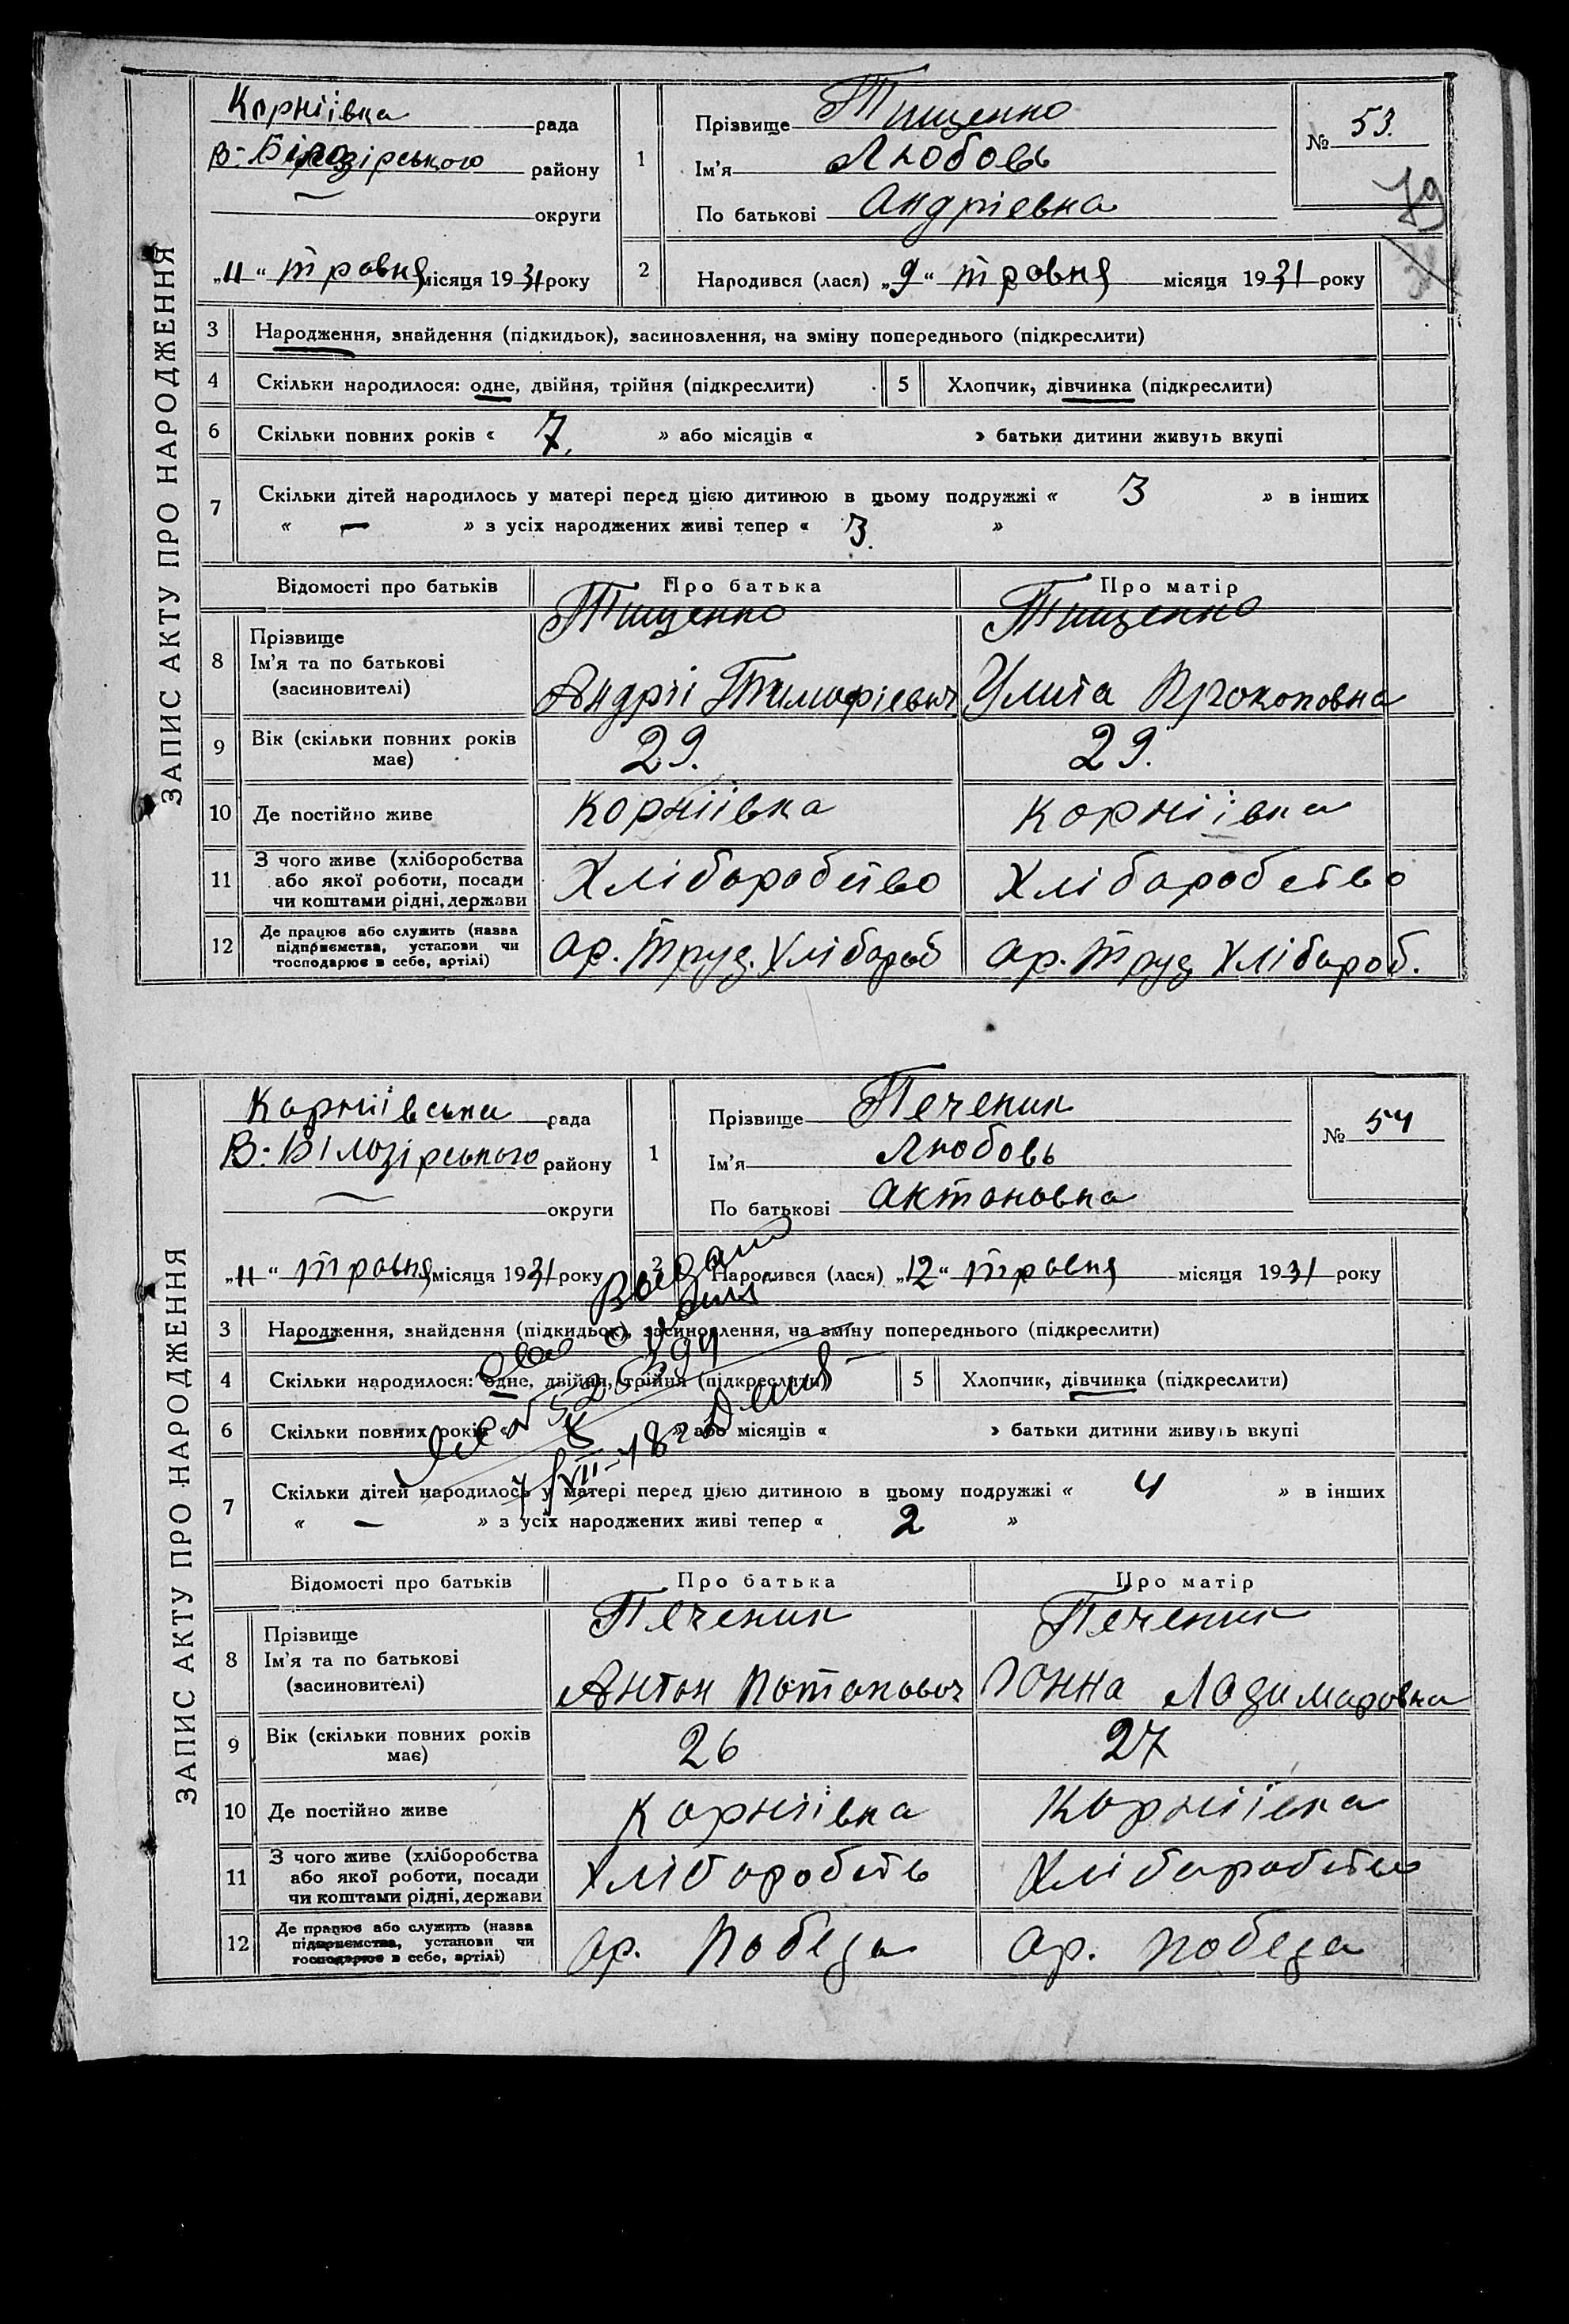 ЗАПИС АКТУ ПРО НАРОДЖЕННЯ
Корніївка рада
В-Білозірського району
— округи
„11“ травня місяця 1931 року
1 Прізвище Тищенко
Ім'я Любовь
По батькові Андріевна
№ 53.
79
2 Народився (лася) „9“ травня місяця 1931 року
3 Народження, знайдення (підкидьок), засиновлення, на зміну попереднього (підкреслити)
4 Скільки народилося: одне, двійня, трійня (підкреслити) 5 Хлопчик, дівчинка (підкреслити)
6 Скільки повних років « 7. » або місяців « » батьки дитини живуть вкупі
7 Скільки дітей народилось у матері перед цією дитиною в цьому подружжі « 3 » в інших
« — » з усіх народжених живі тепер « 3. »
Відомості про батьків Про батька Про матір
8 Прізвище Тищенко Тищенко
Ім'я та по батькові
(засиновителі) Андріі Тимофіевич Улита Прокоповна
9 Вік (скільки повних років має) 29. 29.
10 Де постійно живе Корніівка Корніівка
11 З чого живе (хліборобства
або якої роботи, посади
чи коштами рідні, держави Хлібаробство Хлібаробство
12 Де працює або служить (назва
підприємства, установи чи
господарює в себе, артілі) ар. Труд. Хлібароб ар. Труд Хлібароб.
ЗАПИС АКТУ ПРО НАРОДЖЕННЯ
Корніівська рада
В-Білозірського району
— округи
„11“ травня місяця 1931 року
1 Прізвище Печеник
Ім'я Любовь
По батькові Актоновна
№ 54
2 Народився (лася) „12“ травня місяця 1931 року
3 Народження, знайдення (підкидьок), засиновлення, на зміну попереднього (підкреслити)
4 Скільки народилося: одне, двійня, трійня (підкреслити) 5 Хлопчик, дівчинка (підкреслити)
6 Скільки повних років « 8 » або місяців « » батьки дитини живуть вкупі
7 Скільки дітей народилось у матері перед цією дитиною в цьому подружжі « 4 » в інших
« — » з усіх народжених живі тепер « 2 »
Відомості про батьків Про батька Про матір
8 Прізвище Печеник Печеник
Ім'я та по батькові
(засиновителі) Антон Потапович Ганна Ладимаровна
9 Вік (скільки повних років має) 26 27
10 Де постійно живе Корніівка Корніівка
11 З чого живе (хліборобства
або якої роботи, посади
чи коштами рідні, держави Хлібаробств Хлібаробство
12 Де працює або служить (назва
підприємства, установи чи
господарює в себе, артілі) ар. Победа ар. Победа